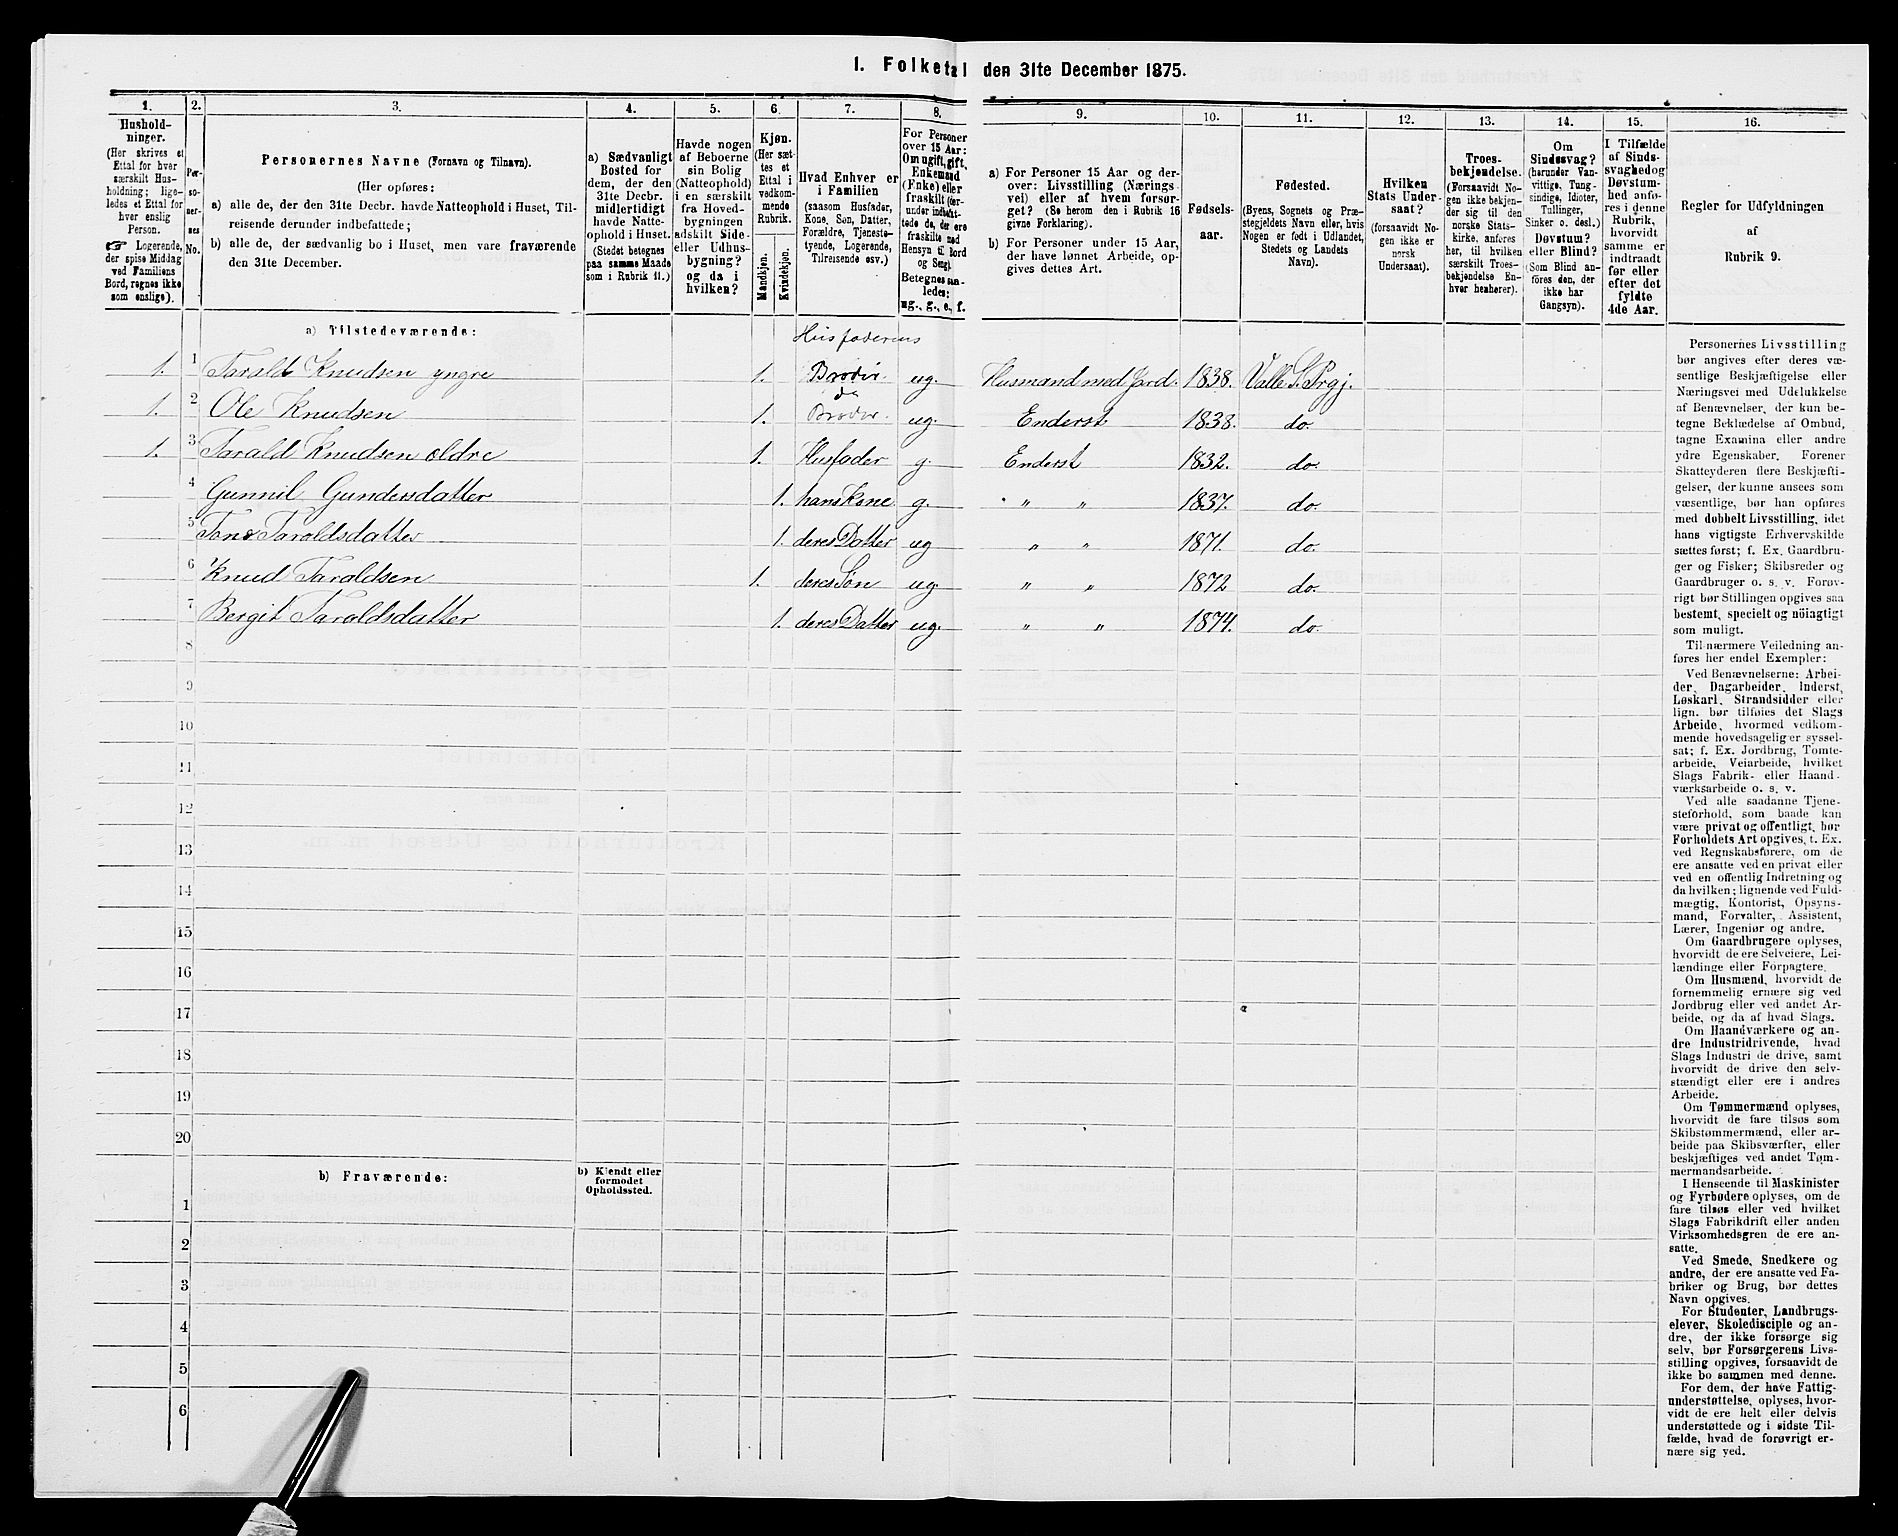 I. Folketal den 31te December 1875.
1. 2. 3. 4. 5. 6. 7. 8. 9. 10. 11. 12. 13. 14. 15. 16.
Hushold-
ninger.
(Her skrives et
Ettal for hver
særskilt Hus-
holdning; lige-
ledes et Ettal for
hver enslig
Person.
☞ Logerende,
der spise Middag
ved Familiens
Bord, regnes ikke
som enslige).
Per-
so-
ner-
nes
No.
Personernes Navne (Fornavn og Tilnavn).
(Her opføres:
a) alle de, der den 31te Decbr. havde Natteophold i Huset, Til-
reisende derunder indbefattede;
b) alle de, der sædvanlig bo i Huset, men vare fraværende
den 31te December.
a) Sædvanligt
Bosted for
dem, der den
31te Decbr.
midlertidigt
havde Natte-
ophold i Huset.
(Stedet betegnes
paa samme Maade
som i Rubrik 11.)
Havde nogen
af Beboerne
sin Bolig
(Natteophold)
i en særskilt
fra Hoved-
bygningen
adskilt Side-
eller Udhus-
bygning?
og da i
hvilken?
Kjøn.
(Her sæt-
tes et
Ettal i
vedkom-
mende
Rubrik.
Mandkjøn.
Kvindekjøn.
Hvad Enhver er
i Familien
(saasom Husfader,
Kone, Søn, Datter,
Forældre, Tjeneste-
tyende, Logerende,
Tilreisende osv.)
For Personer
over 15 Aar:
Om ugift, gift,
Enkemand
(Enke) eller
fraskilt (der-
under indbefat-
tede de, der ere
fraskilte med
Hensyn til Bord
og Seng).
Betegnes saa-
ledes:
ug., g., e., f.
a) For Personer 15 Aar og der-
over: Livsstilling (Nærings-
vei) eller af hvem forsør-
get? (Se herom den i Rubrik 16
givne Forklaring).
b) For Personer under 15 Aar,
der have lønnet Arbeide, op-
gives dettes Art.
Fødsels-
aar.
Fødested.
(Byens, Sognets og Præ-
stegjeldets Navn eller, hvis
Nogen er født i Udlandet,
Stedets og Landets
Navn).
Hvilken
Stats Under-
saat?
(forsaavidt No-
gen ikke er
norsk
Undersaat).
Troes-
bekjendelse.
(Forsaavidt No-
gen ikke bekjen-
der sig til den
norske Stats-
kirke, anføres
her, til hvilken
særskilt Troes-
bekjendelse En-
hver henhører).
Om
Sindssvag?
(herunder Van-
vittige, Tung-
sindige, Idioter,
Tullinger,
Sinker o. desl.)
Døvstum?
eller Blind?
(Som Blind an-
føres den, der
ikke har
Gangsyn).
I Tilfælde
af Sinds-
svaghed og
Døvstum-
hed anfø-
res i denne
Rubrik,
hvorvidt
samme er
indtraadt
før eller
efter det
fyldte
4de Aar.
Regler for Udfyldningen
af
Rubrik 9.
a) Tilstedeværende:
Husfaderens
1. 1 Tarald Knudsen yngre 1. Broder ug. Husmand med Jord. 1838. Valle S. Prgj.
1. 2 Ole Knudsen 1. do Broder ug. Enderst 1838. do.
1. 3 Tarald Knudsen ældre 1. Husfader g. Enderst 1832. do.
4 Gunnil Gundersdatter 1. hans Kone g. " " 1837. do.
5 Tone Taraldsdatter 1. deres Datter ug " " 1871. do.
6 Knud Taraldsen 1. deres Søn ug. " " 1872 do.
7 Bergit Taraldsdatter 1. deres Datter ug. " " 1874. do.
8
9
10
11
12
13
14
15
16
17
18
19
20
b) Fraværende:
b) Kjendt eller
formodet
Opholdssted.
1
2
3
4
5
6
Personernes Livsstilling
bør angives efter deres væ-
sentlige Beskjæftigelse eller
Næringsvei med Udelukkelse
af Benævnelser, der kun be-
tegne Beklædelse af Ombud,
tagne Examina eller andre
ydre Egenskaber. Forener
Skatteyderen flere Beskjæfti-
gelser, der kunne ansees som
væsentlige, bør han opføres
med dobbelt Livsstilling, idet
hans vigtigste Erhvervskilde
sættes først; f. Ex. Gaardbru-
ger og Fisker; Skibsreder og
Gaardbruger o. s. v. Forøv-
rigt bør Stillingen opgives saa
bestemt, specielt og nöiagtigt
som muligt.
Til nærmere Veiledning an-
føres her endel Exempler:
Ved Benævnelserne: Arbei-
der, Dagarbeider, Inderst,
Løskarl, Strandsidder eller
lign. bør tilføies det Slags
Arbeide, hvormed vedkom-
mende hovedsagelig er syssel-
sat; f. Ex. Jordbrug, Tomte-
arbeide, Veiarbeide, hvilket
Slags Fabrik- eller Haand-
værksarbeide o. s. v.
Ved alle saadanne Tjene-
steforhold, som baade kan
være privat og offentligt, bør
Forholdets Art opgives, t. Ex.
ved Regnskabsførere, om de
ere ansatte ved en privat eller
ved en offentlig Indretning og
da hvilken; lignende ved Fuld-
mægtig, Kontorist, Opsyns-
mand, Forvalter, Assistent,
Lærer, Ingeniør og andre.
Om Gaardbrugere oplyses,
hvorvidt de ere Selveiere, Lei-
lændinge eller Forpagtere.
Om Husmænd, hvorvidt de
fornemmelig ernære sig ved
Jordbrug eller ved andet Ar-
beide, og da af hvad Slags.
Om Haandværkere og an-
dre Industridrivende, hvad
Slags Industri de drive, samt
hvorvidt de drive den selv-
stændigt eller ere i andres
Arbeide.
Om Tømmermænd oplyses,
hvorvidt de fare tilsøs som
Skibstømmermænd, eller ar-
beide paa Skibsværfter, eller
beskjæftiges ved andet Tøm-
mermandsarbeide.
I Henseende til Maskinister
og Fyrbødere oplyses, om de
fare tilsøs eller ved hvilket
Slags Fabrikdrift eller anden
Virksomhedsgren de ere an-
satte.
Ved Smede, Snedkere og
andre, der ere ansatte ved Fa-
briker og Brug, bør dettes
Navn opgives.
For Studenter, Landbrugs-
elever, Skoledisciple og an-
dre, der ikke forsørge sig
selv, bør Forsørgerens Livs-
stilling opgives, forsaavidt de
ikke bo sammen med denne.
For dem, der have Fattig-
understøttelse, oplyses, hvor-
vidt de ere helt eller delvis
understøttede og i sidste Til-
fælde, hvad de forøvrigt er-
nære sig ved.